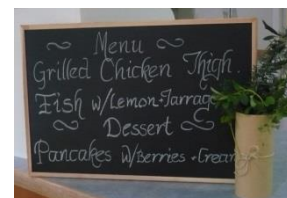 ~ Menu ~
Grilled Chicken Thigh.
Fish w/Lemon+Tarrag
~ Dessert ~
Pancakes w/Berries + Cream